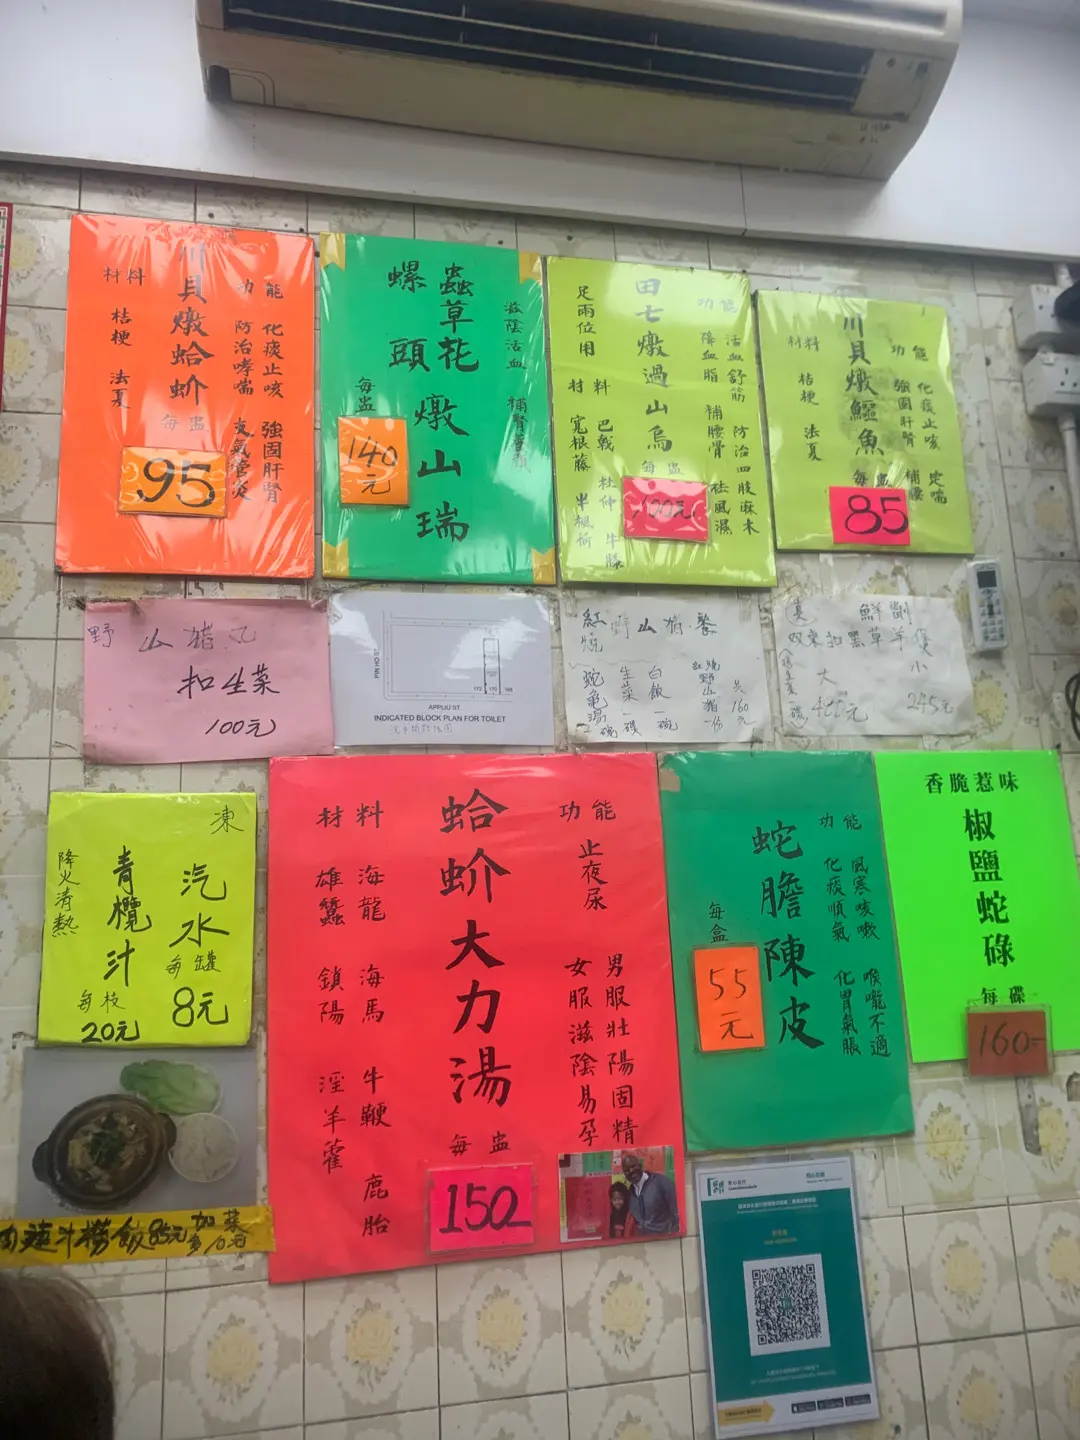 川貝燉蛤蚧
材料
桔梗 法夏
功能
化痰止咳 強固肝腎
防治哮喘 支氣管炎
每盅
95
蟲草花
螺頭
燉山瑞
滋陰活血
補腎養顏
每盅
140
元
田七燉過山烏
足兩位用
材料
巴戟 杜仲 牛膝
寬根藤 半楓荷
功能
活血舒筋 防治四肢麻木
降血脂 補腰骨 祛風濕
每盅
100元
川貝燉鱷魚
材料
桔梗 法夏
功能
化痰止咳 定喘
強固肝腎 補腰
每盅
85
野山豬丸
扣生菜
100元
PEI HO ST
172 170 168
APPLIU ST
INDICATED BLOCK PLAN FOR TOILET
洗手間位置圖
紅燒野山豬餐
紅燒野山豬一份
白飯一碗
生菜一碟
蛇龜湯2碗
共160元
鮮劏
双冬扣黑草羊煲
大
400元
小
245元
凍
汽水
每罐
8元
青欖汁
每枝
20元
降火清熱
蛤蚧大力湯
材料
海龍 海馬 牛鞭 鹿胎
雄蠶 鎖陽 淫羊藿
功能
止夜尿
男服壯陽固精
女服滋陰易孕
每盅
150
蛇膽陳皮
功能
風寒咳嗽 喉嚨不適
化痰順氣 化胃氣脹
每盒
55
元
香脆惹味
椒鹽蛇碌
每碟
160
撈飯85元
加菜
多10元